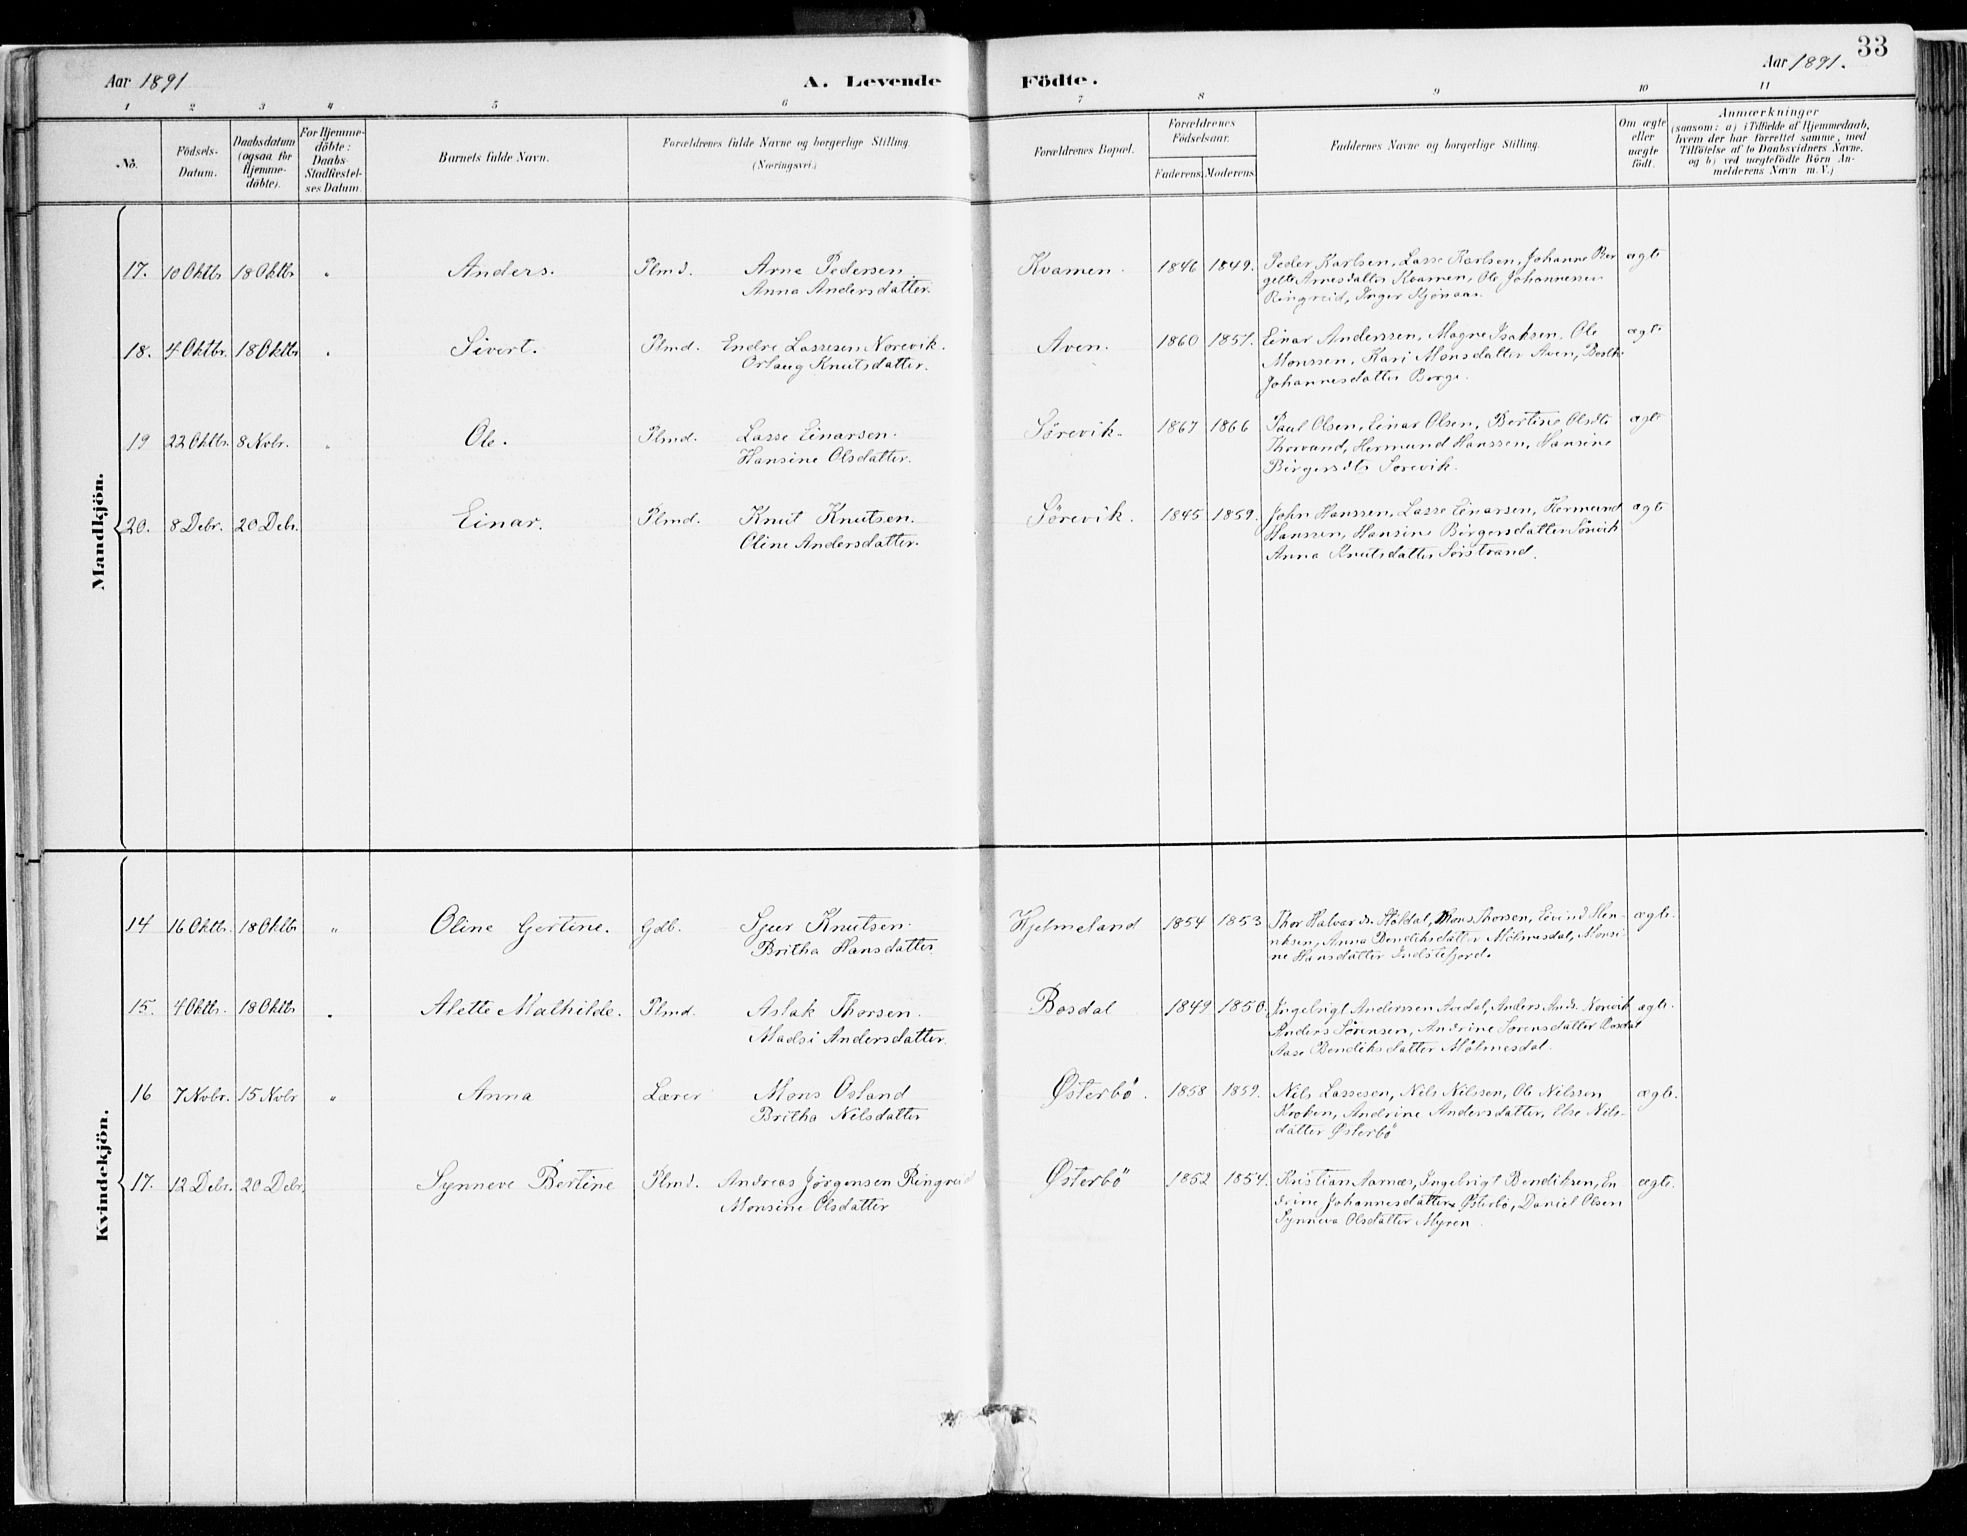 33
Aar 1891
A. Levende
Födte.
Aar 1891.
1 2 3 4 5 6 7 8 9 10 11
No.
Födsels-
Datum.
Daabsdatum
(ogsaa for
Hjemme-
döbte).
For Hjemme-
döbte:
Daabs-
Stadfæstel-
ses Datum.
Barnets fulde Navn.
Forældrenes fulde Navne og borgerlige Stilling
(Næringsvei.)
Forældrenes Bopæl.
Forældrenes
Födselsaar.
Faderens. Moderens.
Faddernes Navne og borgerlige Stilling.
Om ægte
eller
uægte
födt.
Anmærkninger
(saasom: a) i Tilfælde af Hjemmedaab,
hvem der har forrettet samme, med
Tilföielse af to Daabsvidners Navne.
og b) ved uægtefödte Börn An-
melderens Navn m. V.)
Mandkjön.
17. 10 Oktbr 18 Oktbr " Anders. Plmd. Arne Pedersen.
Anna Andersdatter.
Kvamen. 1846 1849. Peder Karlsen, Lasse Karlsen, Johanne Ber
gitte Arnesdatter Kvamen, Ole Johannessen
Ringreid, Inger Kjönaas.
ægte
18. 4 Oktbr. 18 Oktbr " Sivert. Plmd. Endre Lassesen Norevik.
Orlaug Knutsdatter.
Aven. 1860 1857. Einar Anderssen, Magne Isaksen, Ole
Monssen, Kari Monsdatter Aven,
Johannesdatter Berge.
ægte
19 22 Oktbr. 8 Novbr. " Ole. Plmd. Lasse Einarsen.
Hansine Olsdatter.
Sörevik. 1867 1866 Paul Olsen, Einar Olsen, Bertine Olsdtr
Hermund Hanssen, Hansine
Birgersdtr Sörevik.
ægte
20. 8 Debr. 20 Debr. Einar. Plmd. Knut Knutsen.
Oline Andersdatter.
Sörevik. 1845 1859. John Hanssen, Lasse Einarsen, Hermund
Hanssen, Hansine Birgersdatter Sörevik
Anna Knutsdatter Sörstrand.
ægte
Kvindekjön.
14 16 Oktbr. 18 Oktbr " Oline Gertine. Gdb. Sjur Knutsen.
Britha Hansdatter.
Kjelmeland 1854 1853 Thor Halvards. Stöldal, Mons Thorsen, Eivind Hen-
riksen, Anna Bendiksdatter Mölmesdal, Monsi-
ne Hansdatter Indstefjord.
ægte.
15. 4 Oktbr. 18 Oktbr " Alette Mathilde. Plmd. Aslak Thorsen.
Madsi Andersdatter.
Bosdal 1849 1850. Ingebrigt Anderssen Avedal, Anders Ands. Norevik
Anders Sörensen, Andrine Sörensdatter Bosdal
Aase Bendiksdatter Mölmesdal.
ægte.
16 7 Novbr. 15 Novbr " Anna Lærer Mons Osland
Britha Nilsdatter
Østerbö. 1858 1859. Nils Lassesen, Nils Nilssen, Ole Nilssen
Kroken, Andrine Andersdatter, Else Nils-
datter Østerbö
ægte.
17. 12 Debr. 20 Debr. Synneve Bertine Plmd. Andreas Jørgensen Ringreid
Monsine Olsdatter
Østerbö 1852 1854. Kristian Aarnæs, Ingebrigt Bendiksen, En
drine Johannesdatter Østerbö, Daniel Olsen
Synneva Olsdatter Myren.
ægte.